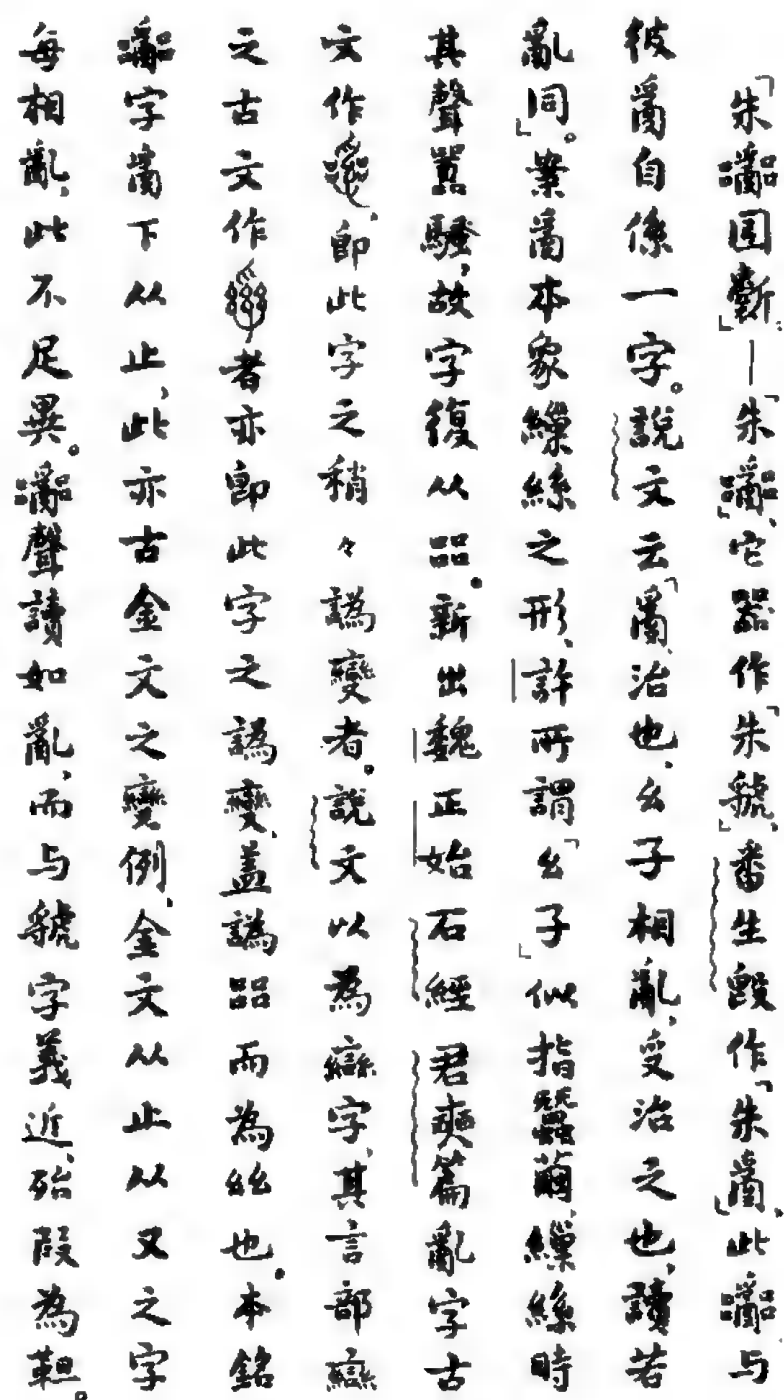 「朱𤔲𡇈𣂔」—「朱𤔲」，它器作「朱虢」，番生𣪘作「朱𤔔」，此𤔲与
彼𤔔自係一字。說文云「𤔔，治也，幺子相亂，𠬪治之也，讀若
亂同」。案𤔔本象繅絲之形，許所謂「幺子」似指蠶繭，繅絲時
其聲囂騷，故字復从㗊。新出魏正始石經君奭篇亂字古
文作，即此字之稍々譌變者。說文以為䜌字，其言部䜌
之古文作者亦即此字之譌變，蓋譌㗊而為絲也。本銘
字𤔔下从止，此亦古金文之變例，金文从止从又之字
每相亂，此不足異。聲讀如亂，而与虢字義近，殆叚為靼。